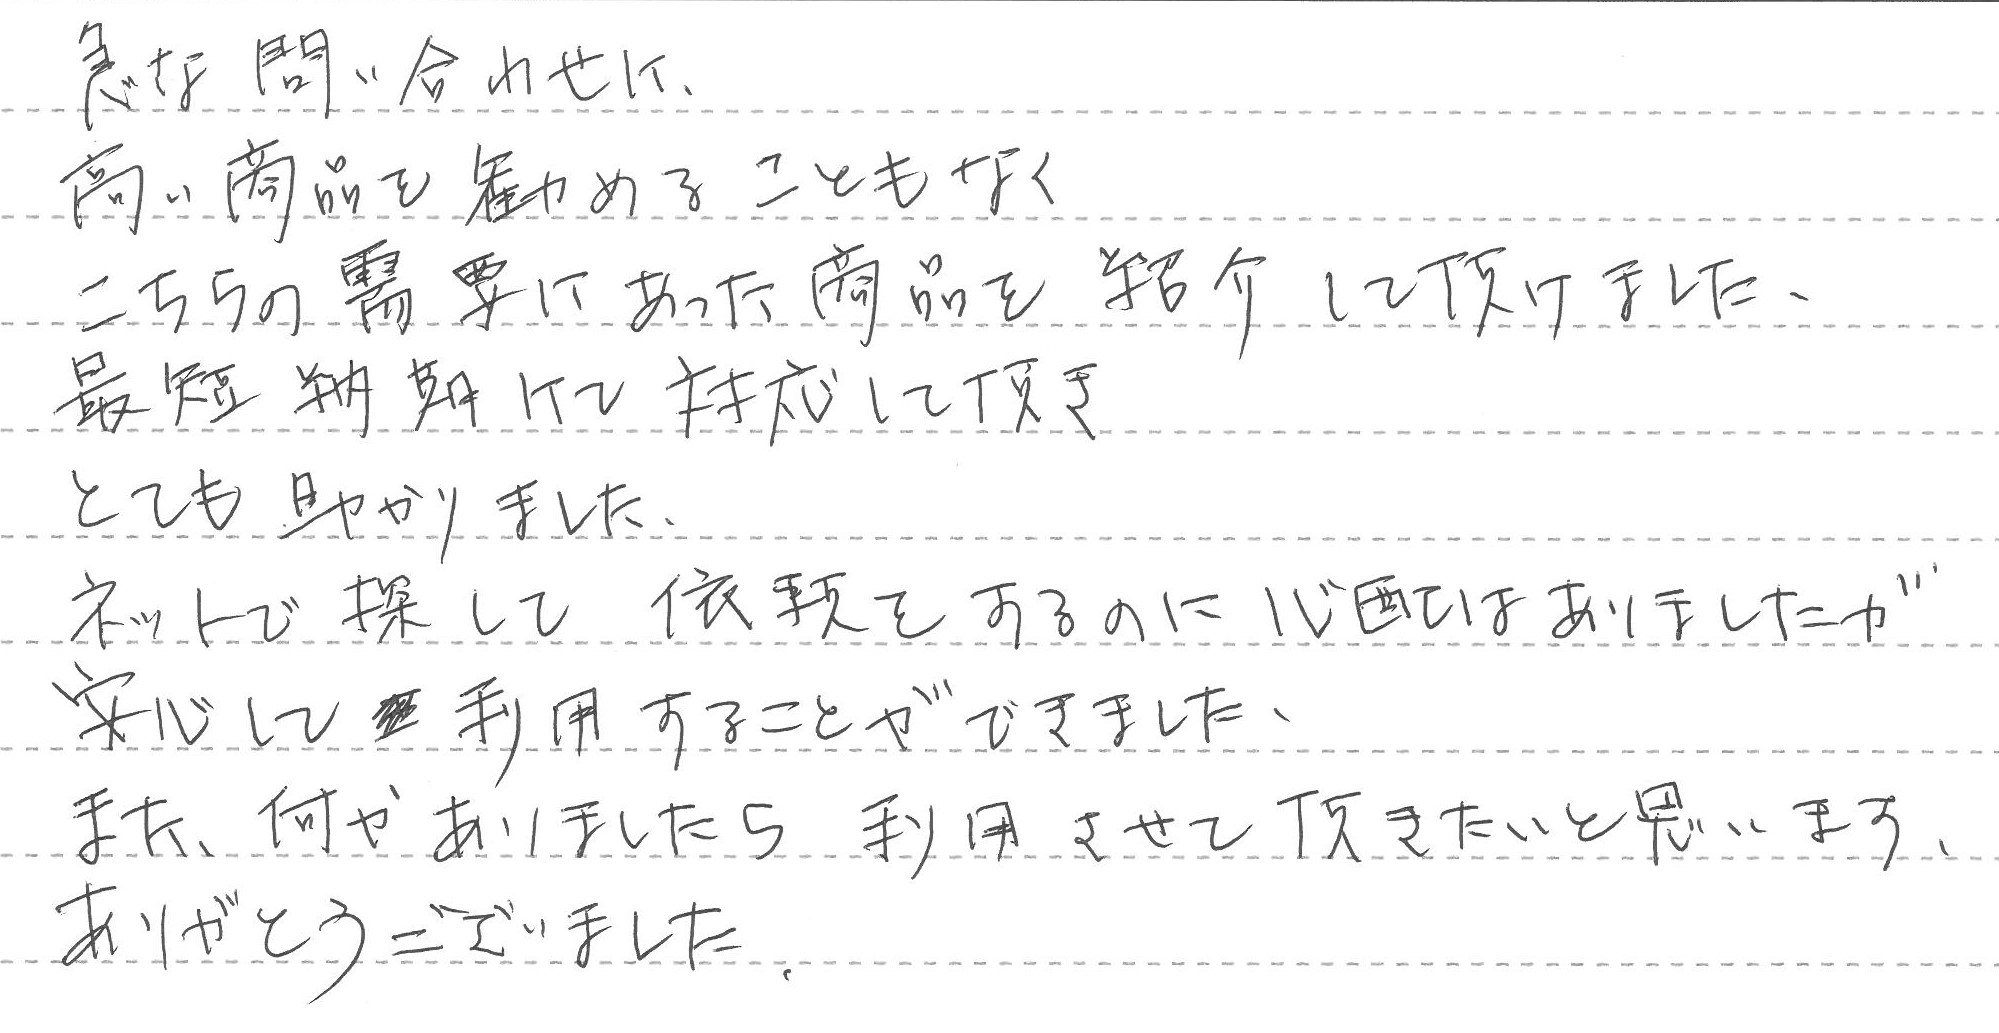 急な問い合わせに、
高い商品を勧めることもなく
こちらの需要にあった商品を紹介して頂けました、
最短納期にて対応して頂き
とても助かりました、
ネットで探して依頼をするのに心配ではありましたが
安心して利用することができました、
また、何かありましたら利用させて頂きたいと思います、
ありがとうございました、